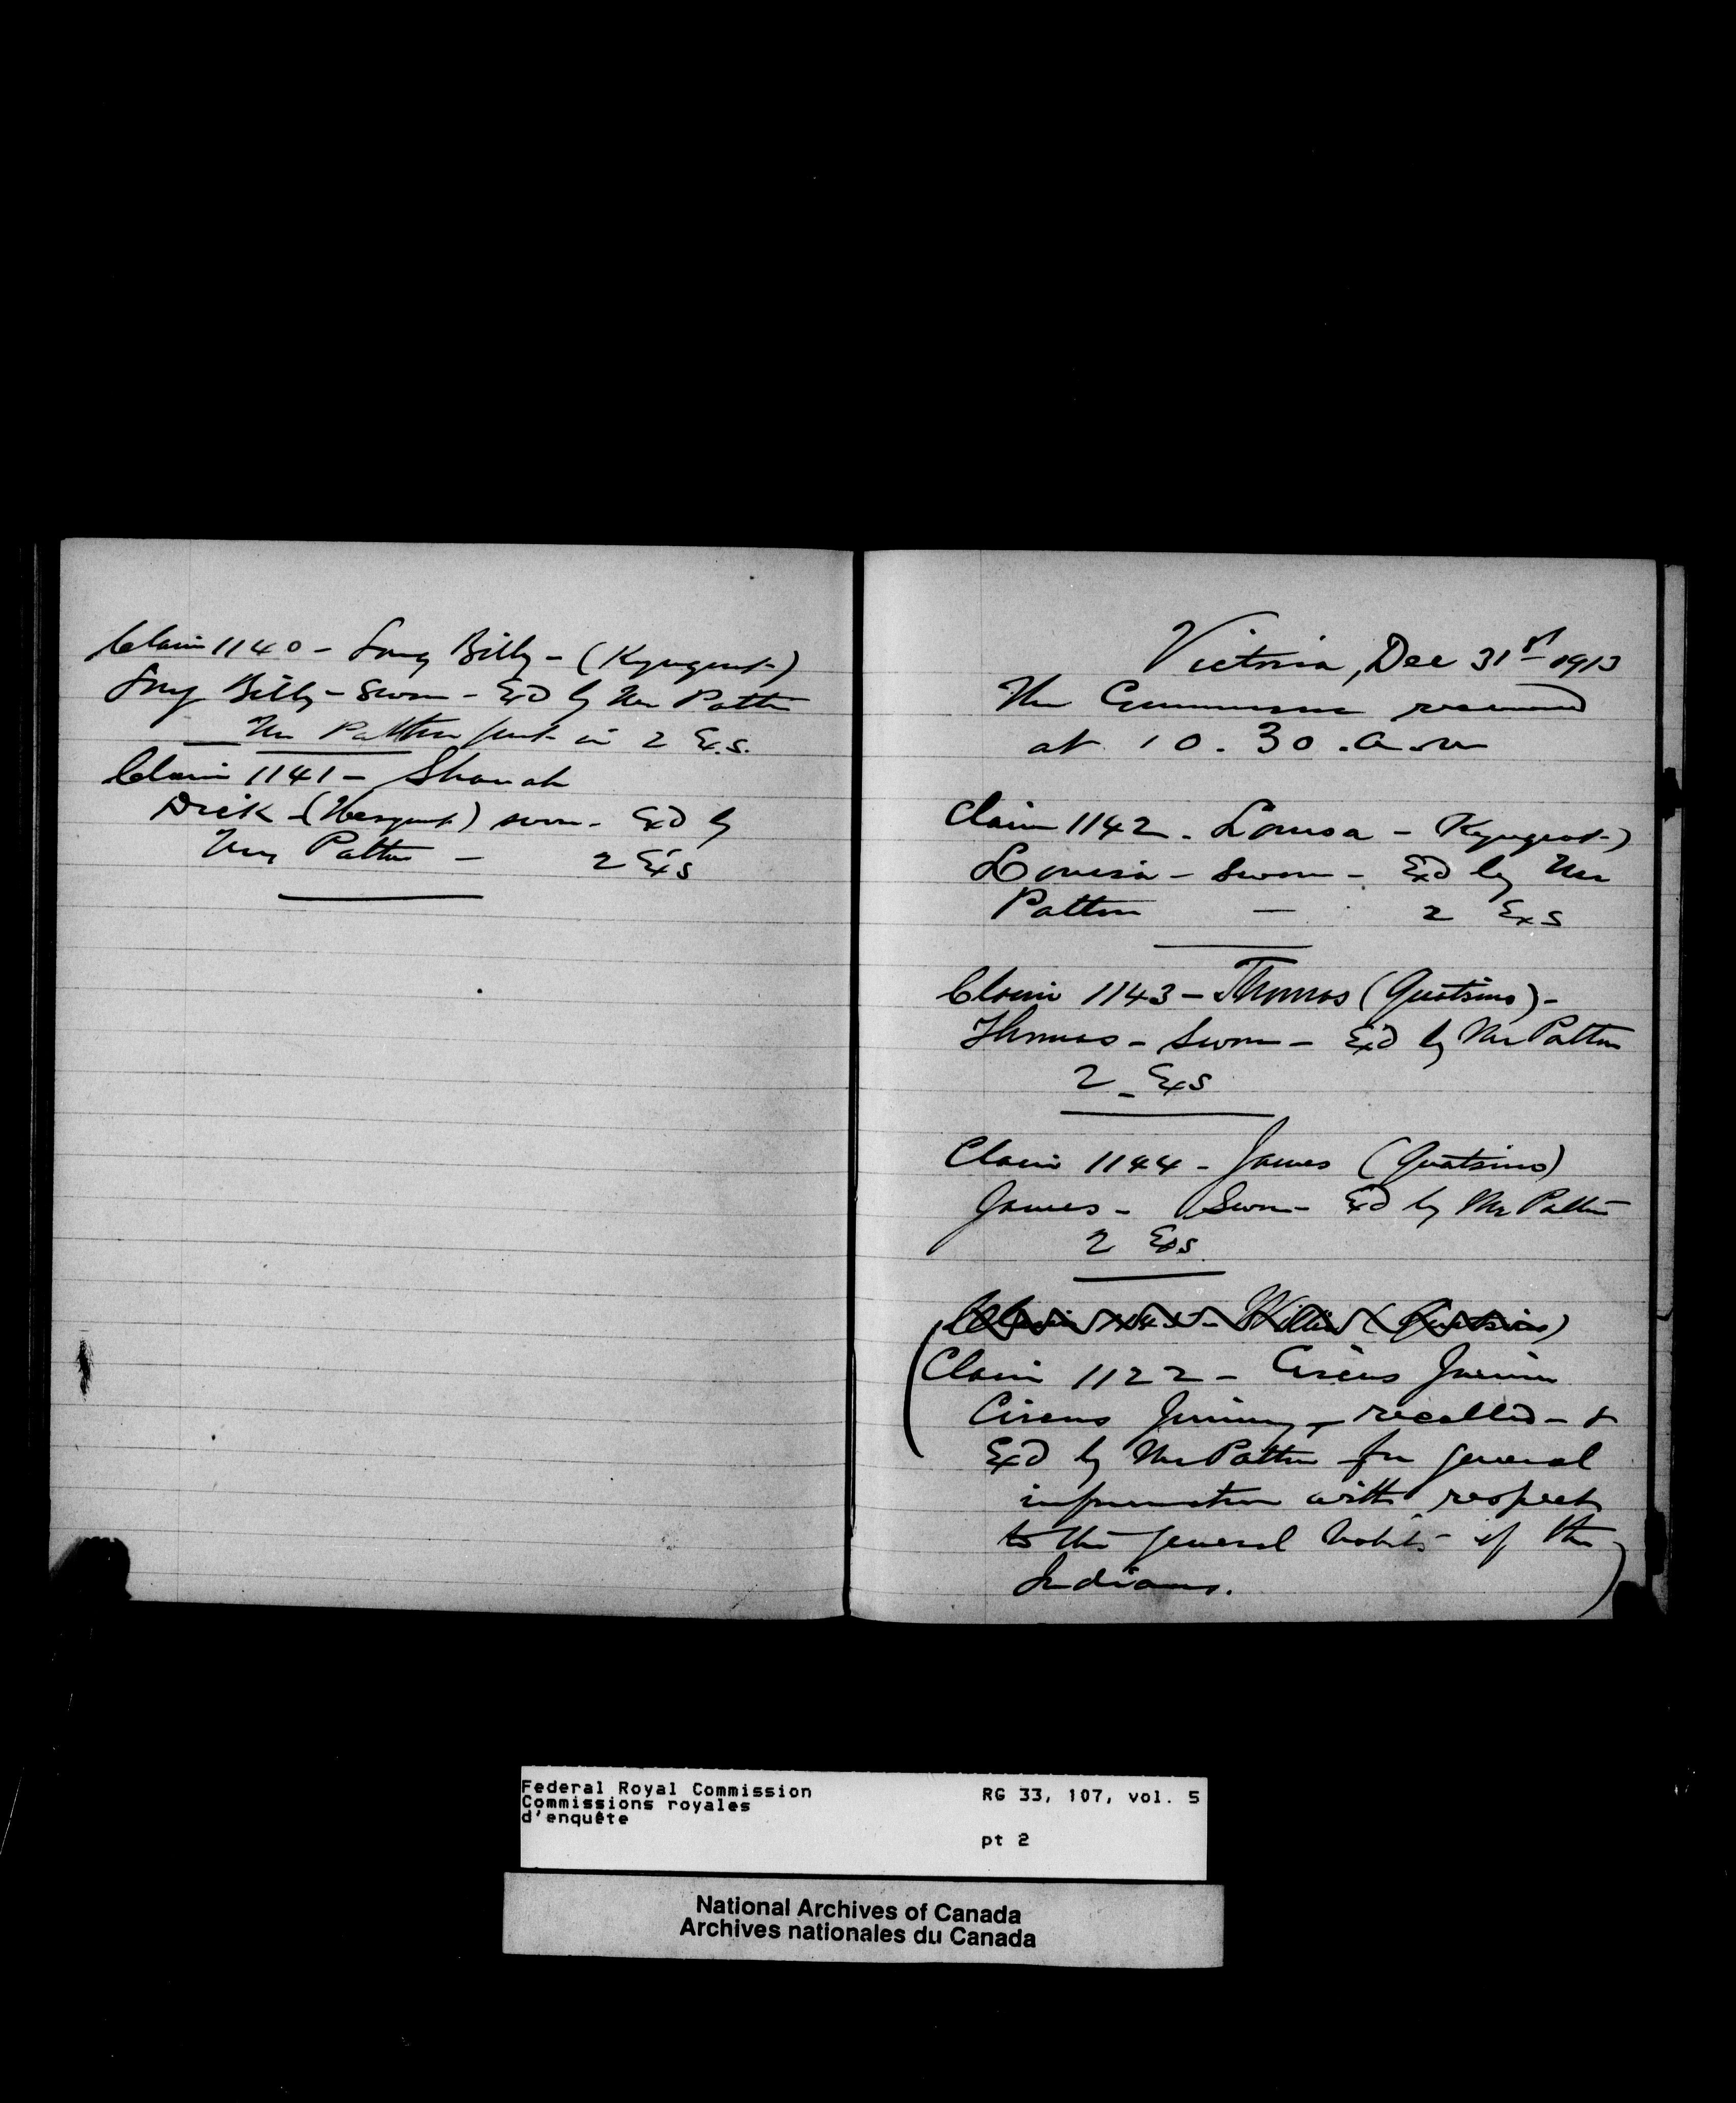 Claim 1140 - Long Billy - (Kyuquot)
Long Billy - Sworn - Ex'd by Mr Patton
Mr Patton put in 2 Exs.
Claim 1141 -
Dick - (Hesquiot) sworn - Ex'd by
Mr Patton - 2 Exs
Victoria, Dec 31st 1913
The Commission resumed
at 10.30.a.m
Claim 1142 - Louisa - Kyuquot)
Louisa - Sworn - Ex'd by Mr
Patton - 2 Exs
Claim 1143 - Thomas (Quatsino) -
Thomas - Sworn - Ex'd by Mr Patton
2 - Exs
Claim 1144 - James (Quatsino)
James - Sworn - Ex'd by Mr Patton
2 Exs.
Claim 1145 - Willie (Quatsino)
(Claim 1122 - Circus Jimmie
Circus Jimmy - recalled - &
Ex'd by Mr Patton for general
information with respect
to the general habits of the
Indians.)
Federal Royal Commission
Commissions royales
d'enquête
RG 33, 107, vol. 5
pt 2
National Archives of Canada
Archives nationales du Canada